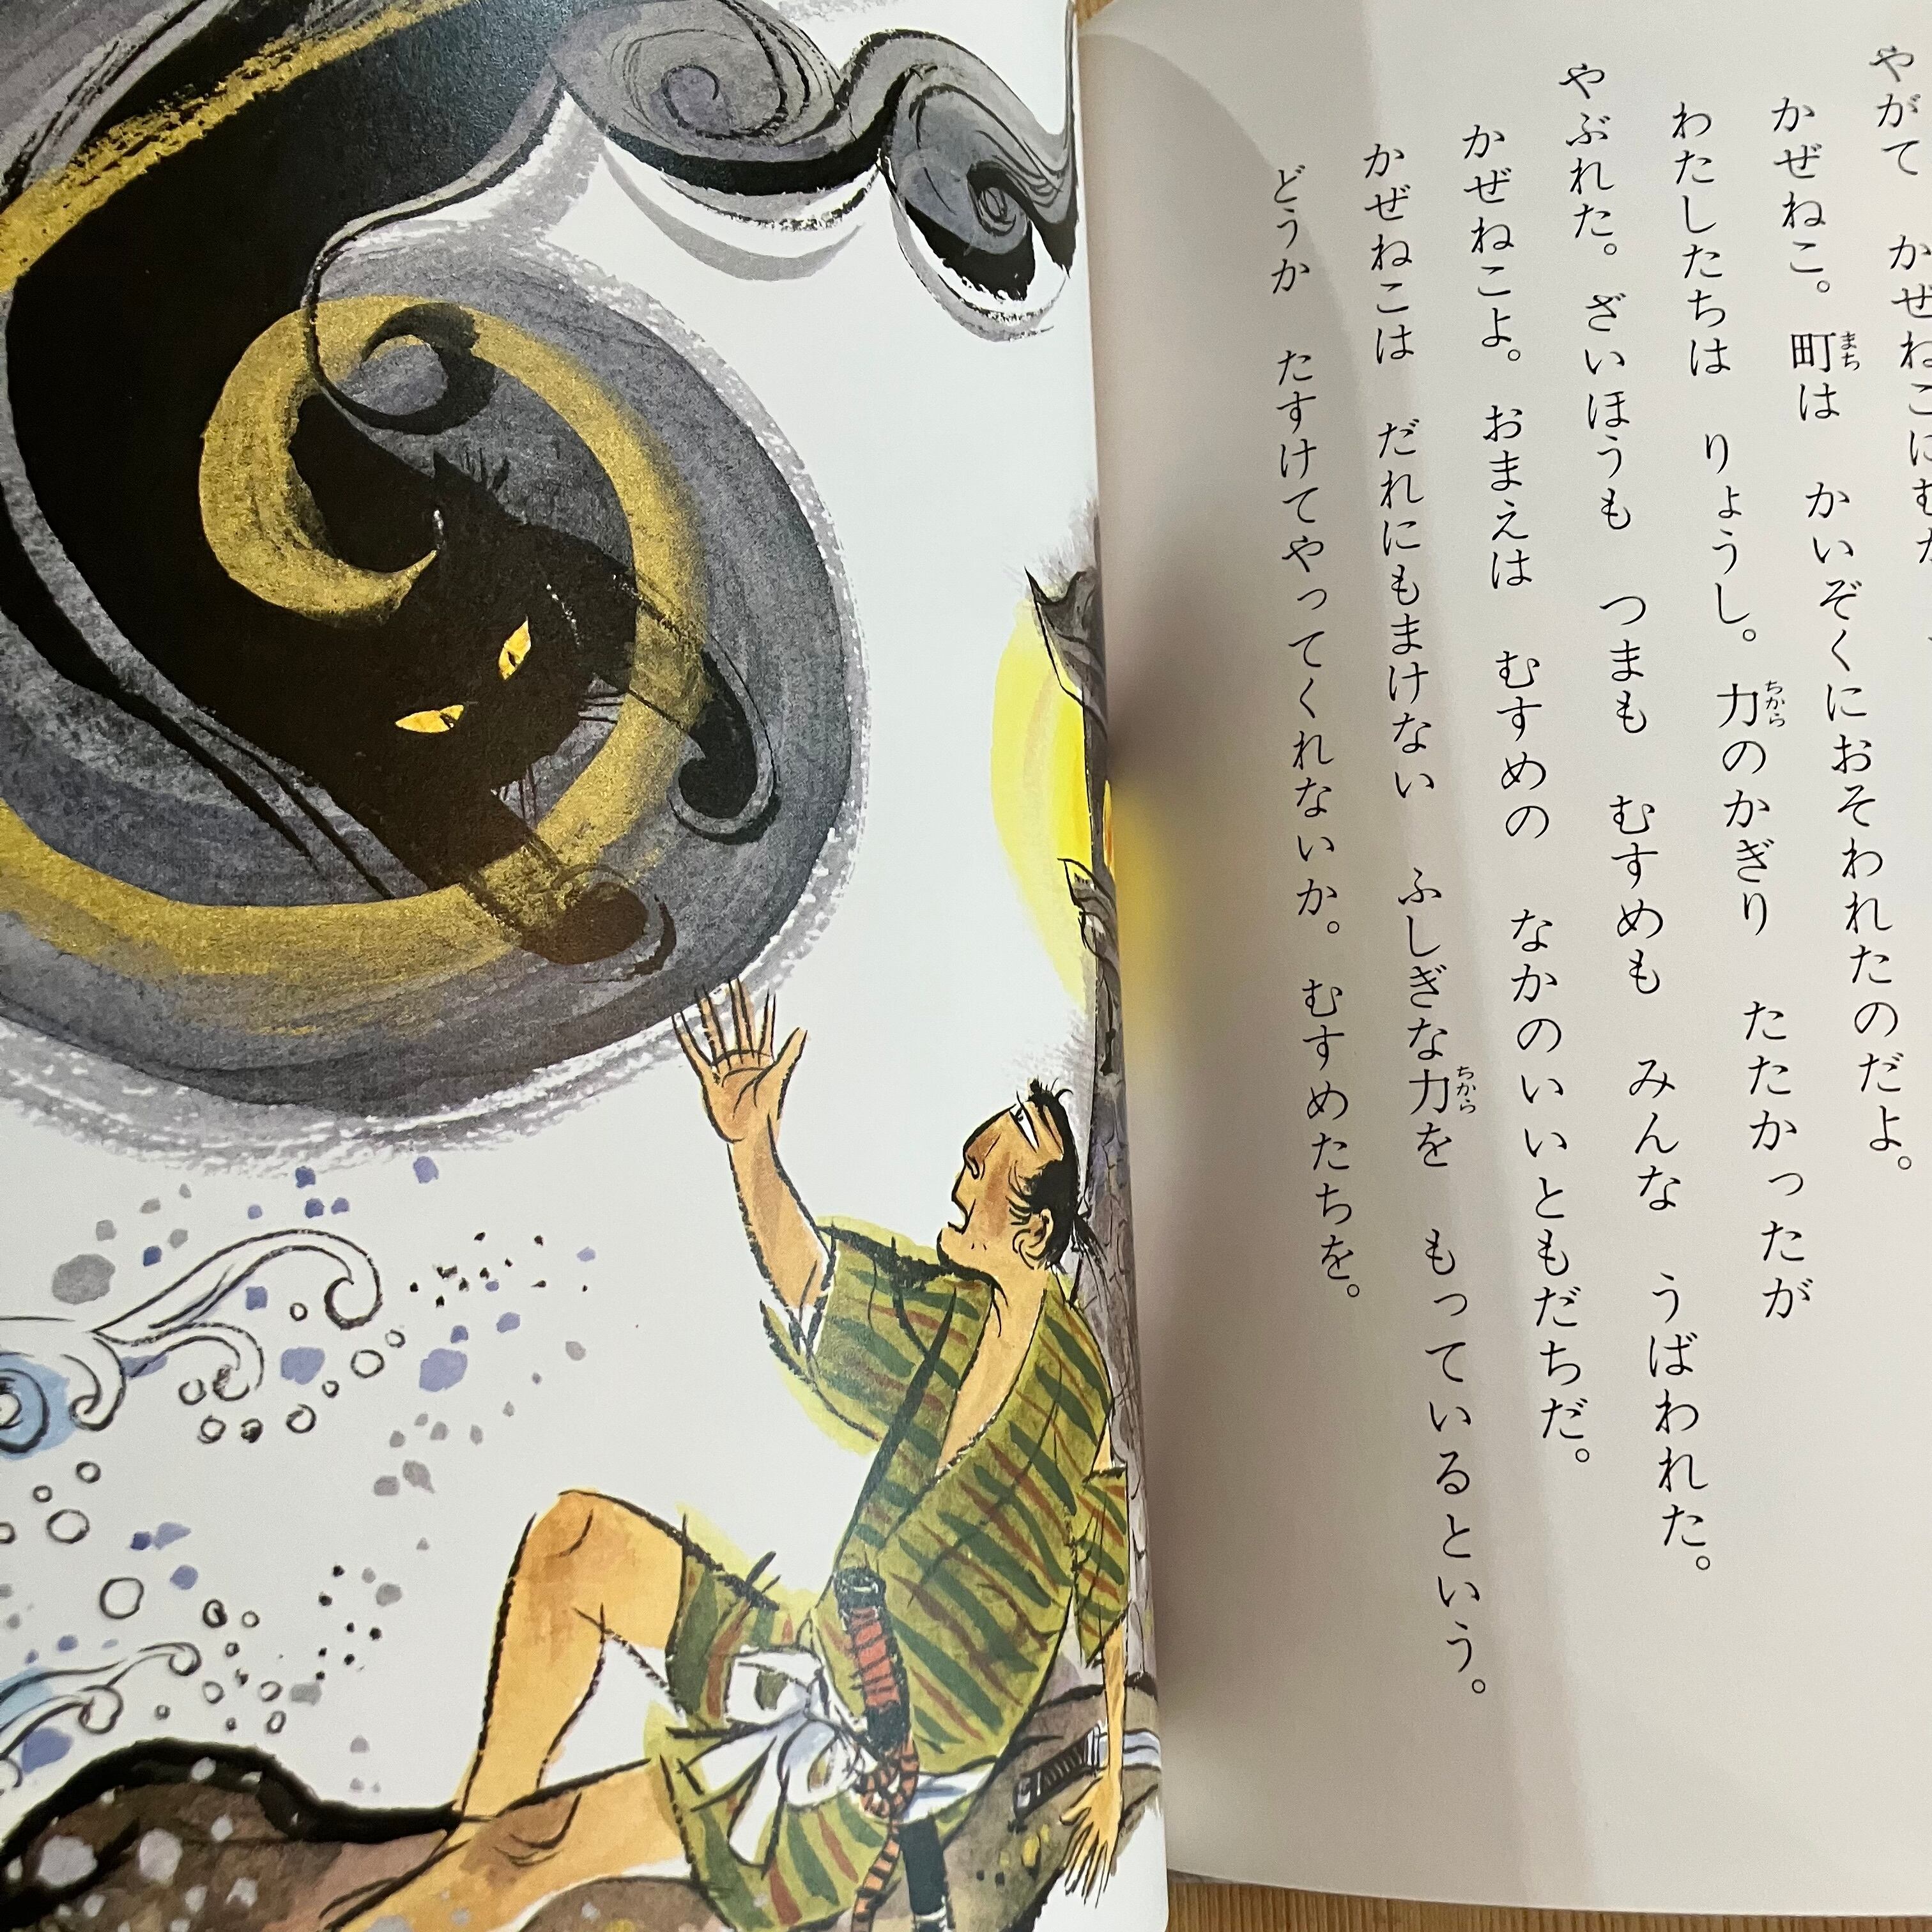 やがて かぜねこにむか
かぜねこ。町は かいぞくにおそわれたのだよ。
わたしたちは りょうし。力のかぎり たたかったが
やぶれた。ざいほうも つまも むすめも みんな うばわれた。
かぜねこよ。おまえは むすめの なかのいいともだちだ。
かぜねこは だれにもまけない ふしぎな力を もっているという。
どうか たすけてやってくれないか。むすめたちを。